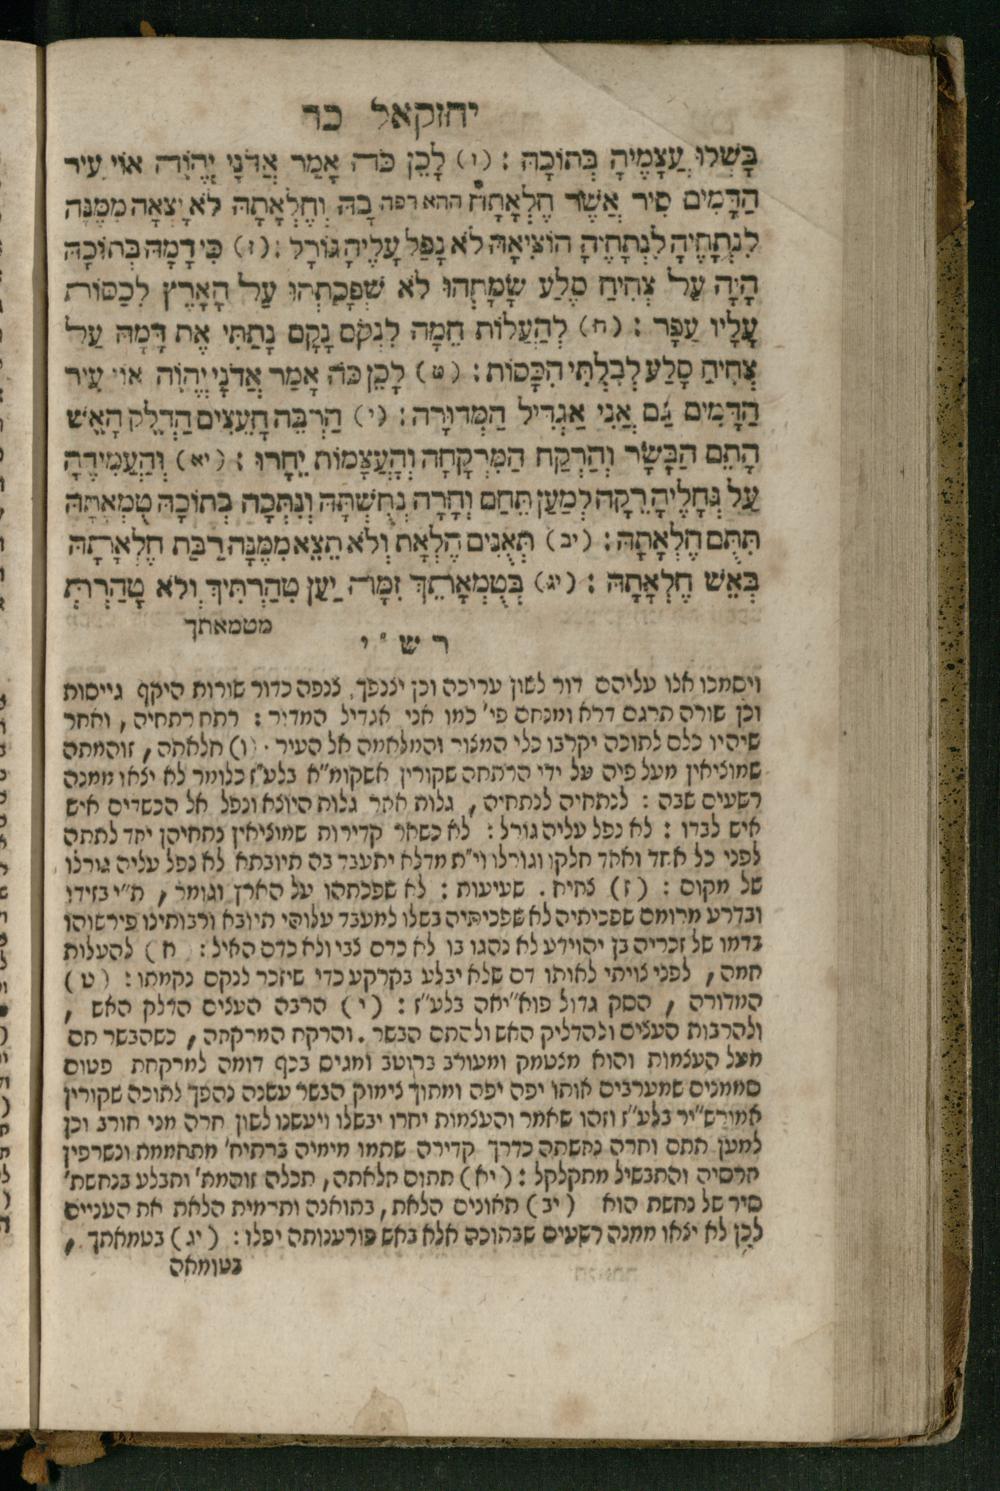 יחזקאל כד
בָּשְׁלוּ עֲצָמֶיהָ בְּתוֹכָהּ : (ו) לָכֵן כֹּה אָמַר אֲדֹנָי יֱהֹוִה אוֹי עִיר
הַדָּמִים סִיר אֲשֶׁר חֶלְאָתָהֿ ההא רפה בָהּ וְחֶלְאָתָהּ לֹא יָצְאָה מִמֶּנָּה
לִנְתָחֶיהָ לִנְתָחֶיהָ הוֹצִיאָהּ לֹא נָפַל עָלֶיהָ גּוֹרָל : (ז) כִּי דָמָהּ בְּתוֹכָהּ
הָיָה עַל צְחִיחַ סֶלַע שָׂמָתְהוּ לֹא שְׁפָכַתְהוּ עַל הָאָרֶץ לְכַסּוֹת
עָלָיו עָפָר : (ח) לְהַעֲלוֹת חֵמָה לִנְקֹם נָקָם נָתַתִּי אֶת דָּמָהּ עַל
צְחִיחַ סָלַע לְבִלְתִּי הִכָּסוֹת : (ט) לָכֵן כֹּה אָמַר אֲדֹנָי יֱהֹוִה אוֹי עִיר
הַדָּמִים גַּם אֲנִי אַגְדִּיל הַמְּדוּרָה : (י) הַרְבֵּה הָעֵצִים הַדְלֵק הָאֵשׁ
הָתֵם הַבָּשָׂר וְהַרְקַח הַמֶּרְקָחָה וְהָעֲצָמוֹת יֵחָרוּ : (יא) וְהַעֲמִידֶהָ
עַל גֶּחָלֶיהָ רֵקָה לְמַעַן תֵּחַם וְחָרָה נְחֻשְׁתָּהּ וְנִתְּכָה בְתוֹכָהּ טֻמְאָתָהּ
תִּתֻּם חֶלְאָתָהּ : (יב) תְּאֻנִים הֶלְאָת וְלֹא תֵצֵא מִמֶּנָּה רַבַּת חֶלְאָתָהּ
בְּאֵשׁ חֶלְאָתָהּ : (יג) בְּטֻמְאָתֵךְ זִמָּה יַעַן טִהַרְתִּיךְ וְלֹא טָהַרְתְּ
מטמאתך
רש"י
ויסמכו אלו עליהם דור לשון עריכה וכן יצנפך צנפה כדור שורות היקף גייסות
וכן שורה תרגם דרא ומנחם פי' כמו אני אגדיל המדור : רתח רתחיה , ואחר
שיהיו כלם לתוכה יקרבו כלי המצור והמלחמה אל העיר . (ו) חלאתה , זוהמתה
שמוציאין מעל פיה על ידי הרתחה שקורין אשקומ"א בלע"ז כלומר לא יצאו ממנה
רשעים שבה : לנתחיה לנתחיה , גלות אחר גלות היוצא ונפל אל הכשדים איש
איש לבדו : לא נפל עליה גורל : לא כשאר קדירות שמוציאין נתחיהן יחד לתתה
לפני כל אחד ואחד חלקו וגורלו וי"ת מדלא יתעבד בה תיובתא לא נפל עליה גורלו
של מקום : (ז) צחיח . שעיעות : לא שפכתהו על הארץ וגומר , ת"י בזידו
ובדרע מרומם שפכיתיה לא שפכיתיה בשלו למעבד עלוהי תיובא ורבותינו פירשוהו
בדמו של זכריה בן יהוידע לא נהגו בו לא כדם צבי ולא כדם האיל : (ח) להעלות
חמה , לפני צויתי לאותו דם שלא יבלע בקרקע כדי שיזכר לנקם נקמתו : (ט)
המדורה , הסק גדול פוא"יאה בלע"ז : (י) הרבה העצים הדלק האש ,
ולהרבות העצים ולהדליק האש ולהתם הבשר . והרקח המרקחה , כשהבשר תם
מעל העצמות והוא מצטמק ומעורב ברוטב ומגים בכף דומה למרקחת פטום
סממנים שמערבים אותו יפה יפה ומתוך צימוק הבשר עשנה נהפך לתוכה שקורין
אמורש"יר בלע"ז וזהו שאמר והעצמות יחרו יבשלו ויעשנו לשון חרה מני חורב וכן
למען תחם וחרה נחשתה כדרך קדירה שתמו מימיה ברתיח' מתחממת ונשרפין
חרסיה והתבשיל מתקלקל : (יא) תתום חלאתה , תכלה זוהמת' ותבלע בנחשת'
סיר של נחשת הוא (יב) תאונים הלאת , בתואנה ותרמית הלאת את העניים
לכן לא יצאו ממנה רשעים שבתוכה אלא באש פורענותה יפלו : (יג) בטמאתך ,
בטומאה